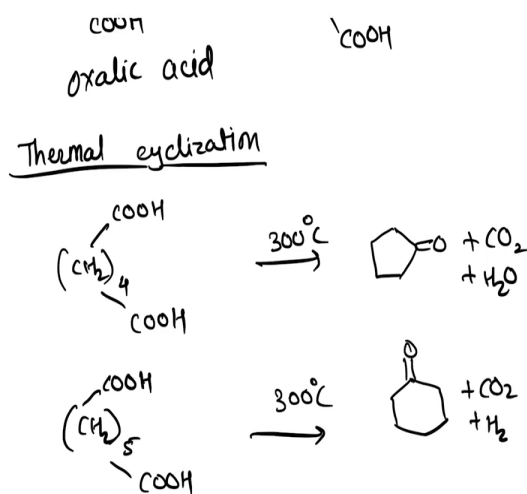 COOH
COOH
Oxalic acid
Thermal cyclization
COOH
(CH₂)₄
COOH
300°C
O + CO₂
+ H₂O
COOH
(CH₂)₅
COOH
300°C
O
+ CO₂
+ H₂